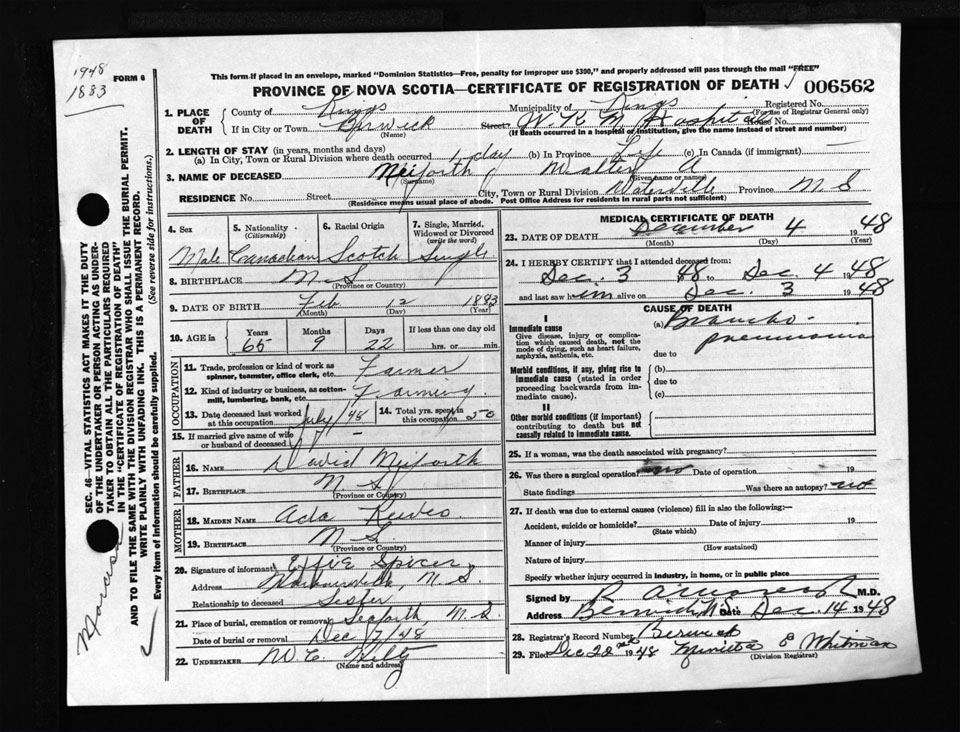 1948
1883
FORM 6
This form if placed in an envelope, marked "Dominion Statistics—Free, penalty for improper use $300," and properly addressed will pass through the mail "FREE"
PROVINCE OF NOVA SCOTIA—CERTIFICATE OF REGISTRATION OF DEATH
006562
1. PLACE OF DEATH
County of Kings
Municipality of Kings
Registered No.
(For use of Registrar General only)
If in City or Town Berwick
(Name)
Street W. K. M. Hospital House No.
(If death occurred in a hospital or institution, give the name instead of street and number)
2. LENGTH OF STAY (in years, months and days)
(a) In City, Town or Rural Division where death occurred 1 day (b) In Province Life (c) In Canada (if immigrant) —
3. NAME OF DECEASED Neiforth Walter A.
(Surname) (Given name or names)
RESIDENCE No. Street City, Town or Rural Division Waterville Province N S
(Residence means usual place of abode. Post Office Address for residents in rural parts not sufficient)
4. Sex
Male
5. Nationality
(Citizenship)
Canadian
6. Racial Origin
Scotch
7. Single, Married, Widowed or Divorced
(write the word)
Single
8. BIRTHPLACE N. S.
(Province or Country)
9. DATE OF BIRTH Feb 12 1883
(Month) (Day) (Year)
10. AGE in
Years Months Days If less than one day old
65 9 22 hrs. or min.
OCCUPATION
11. Trade, profession or kind of work as spinner, teamster, office clerk, etc. Farmer
12. Kind of industry or business, as cotton-mill, lumbering, bank, etc. Farming
13. Date deceased last worked at this occupation July/48
14. Total yrs. spent in this occupation 50
15. If married give name of wife or husband of deceased —
FATHER
16. NAME David Neiforth
17. BIRTHPLACE N. S.
(Province or Country)
MOTHER
18. MAIDEN NAME Ada Reeves
19. BIRTHPLACE N. S.
(Province or Country)
20. Signature of informant Effie Spicer
Address N. S.
Relationship to deceased Sister
21. Place of burial, cremation or removal Seaforth, N. S.
Date of burial or removal Dec 7/48
22. UNDERTAKER W. C.
(Name and address)
MEDICAL CERTIFICATE OF DEATH
23. DATE OF DEATH December 4 1948
(Month) (Day) (Year)
24. I HEREBY CERTIFY that I attended deceased from:
Dec. 3 48 to Dec. 4 1948
and last saw him alive on Dec. 3 1948
CAUSE OF DEATH
I
Immediate cause
Give disease, injury or complication which caused death, not the mode of dying, such as heart failure, asphyxia, asthenia, etc.
(a) Broncho-
pneumonia
due to
Morbid conditions, if any, giving rise to immediate cause (stated in order proceeding backwards from immediate cause).
(b)
due to
(c)
II
Other morbid conditions (if important) contributing to death but not causally related to immediate cause.
25. If a woman, was the death associated with pregnancy?
26. Was there a surgical operation? no Date of operation 19
State findings Was there an autopsy? no
27. If death was due to external causes (violence) fill in also the following:—
Accident, suicide or homicide? Date of injury 19
(State which)
Manner of injury
(How sustained)
Nature of injury
Specify whether injury occurred in industry, in home, or in public place
Signed by M.D.
Address Berwick, N.S. Date Dec. 14 1948
28. Registrar's Record Number Berwick
29. Filed Dec 22nd 1948 E Whitman
(Division Registrar)
SEC. 46—VITAL STATISTICS ACT MAKES IT THE DUTY
OF THE UNDERTAKER OR PERSON ACTING AS UNDER-
TAKER TO OBTAIN ALL THE PARTICULARS REQUIRED
IN THE "CERTIFICATE OF REGISTRATION OF DEATH"
AND TO FILE THE SAME WITH THE DIVISION REGISTRAR WHO SHALL ISSUE THE BURIAL PERMIT.
WRITE PLAINLY WITH UNFADING INK. THIS IS A PERMANENT RECORD.
Every item of information should be carefully supplied. (See reverse side for instructions.)